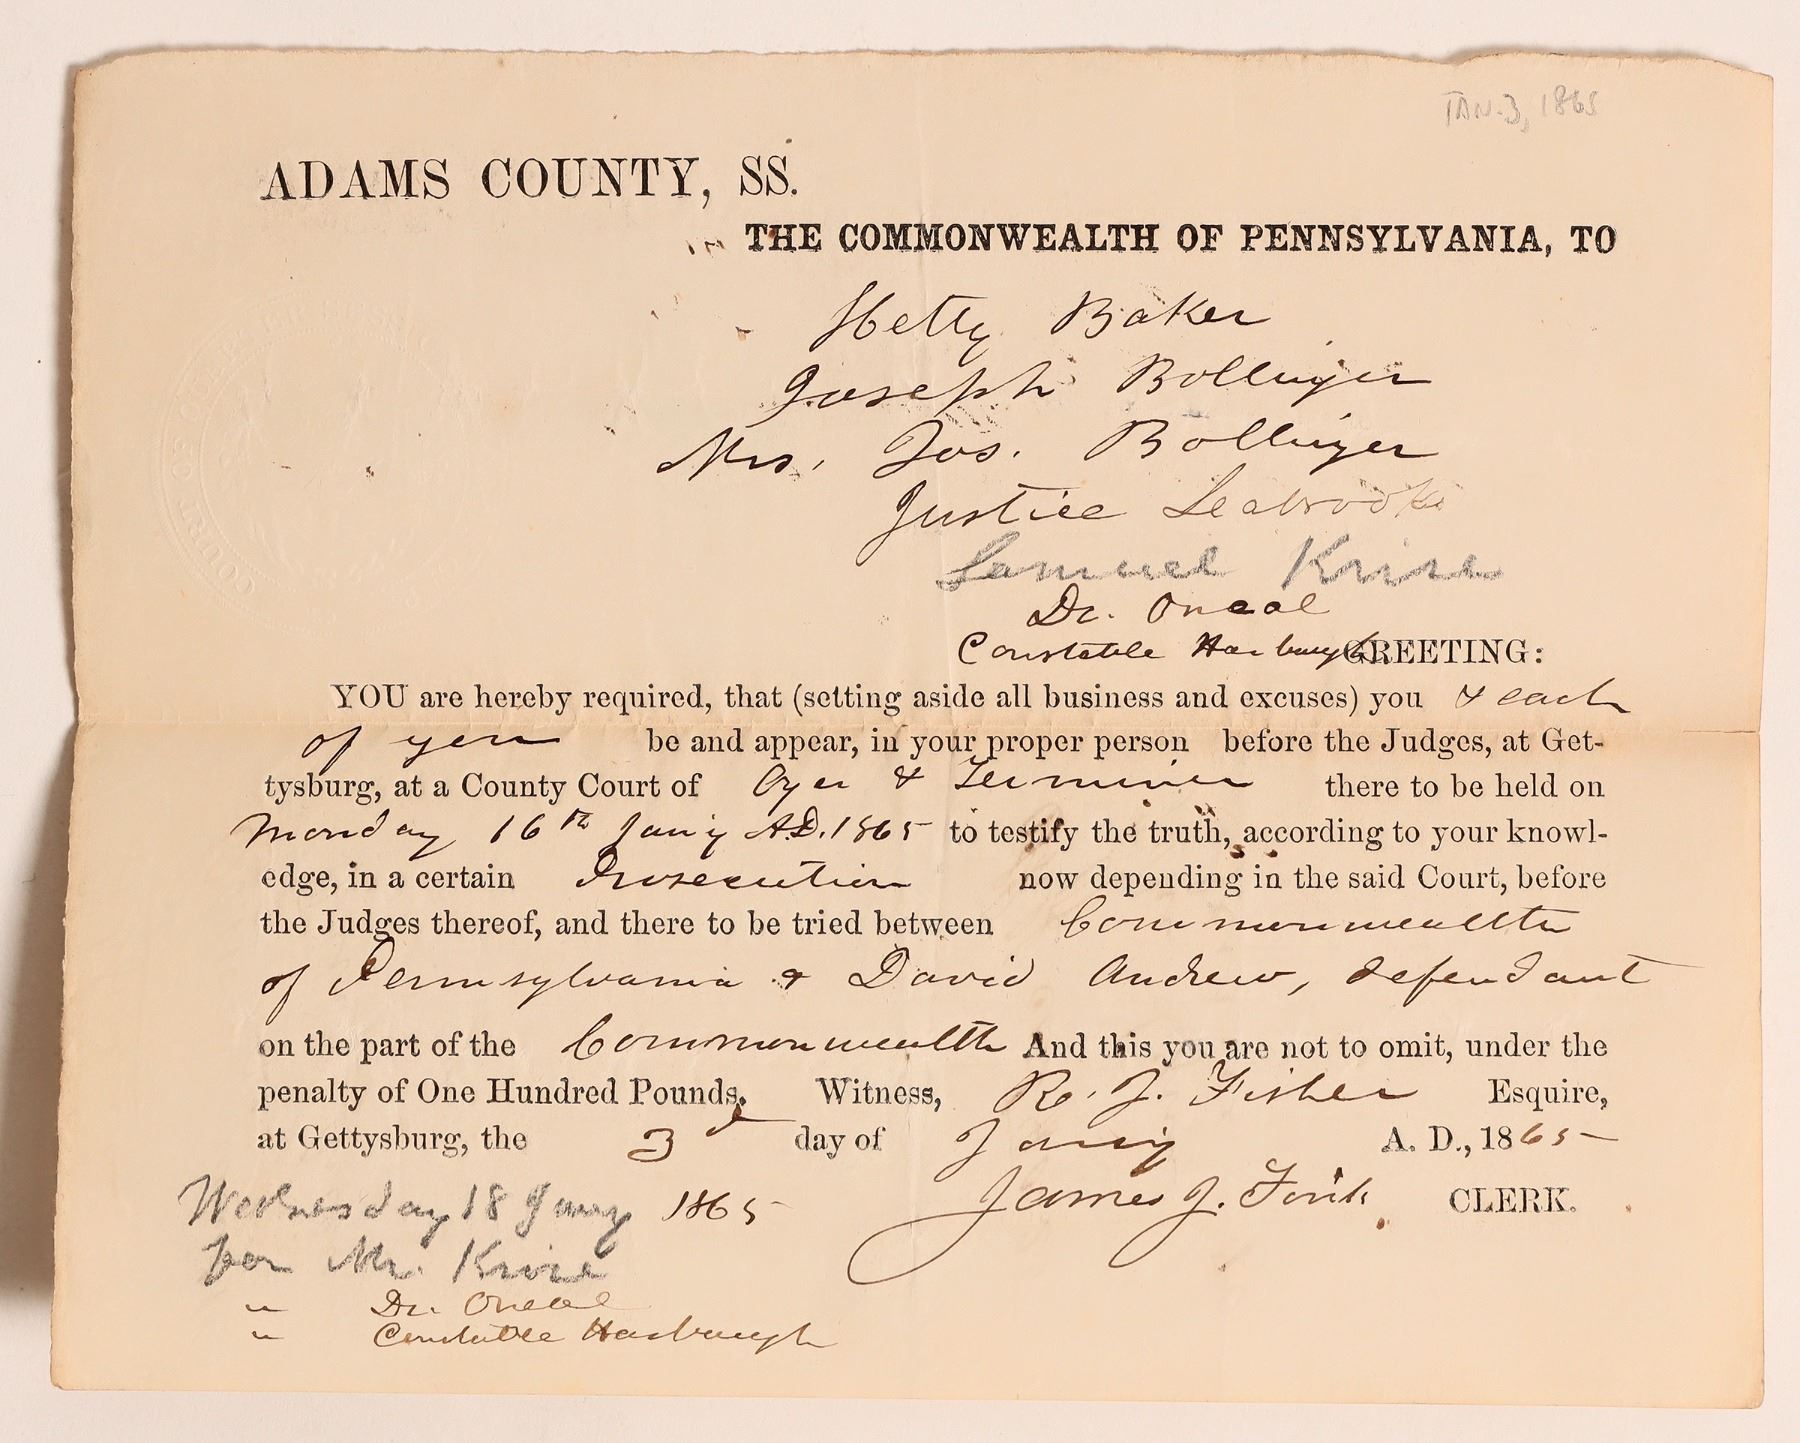 JAN. 3, 1865
ADAMS COUNTY, SS.
THE COMMONWEALTH OF PENNSYLVANIA, TO
Hetty Baker
Joseph Bollinger
Mrs. Jos. Bollinger
Justice Seabrooks
Samuel
Dr. Oneal
Constable Harbaugh GREETING:
YOU are hereby required, that (setting aside all business and excuses) you & each
of you be and appear, in your proper person before the Judges, at Get-
tysburg, at a County Court of Oyer & Terminer there to be held on
Monday 16th Jany A.D. 1865 to testify the truth, according to your knowl-
edge, in a certain Prosecution now depending in the said Court, before
the Judges thereof, and there to be tried between Commonwealth
of Pennsylvania & David Andrew, defendant
on the part of the Commonwealth And this you are not to omit, under the
penalty of One Hundred Pounds. Witness, R. J. Fisher Esquire,
at Gettysburg, the 3d day of Jany A. D., 1865
James J. Fink CLERK.
Wednesday 18 Jany 1865
for Mr.
" Dr. Oneal
" Constable Harbaugh